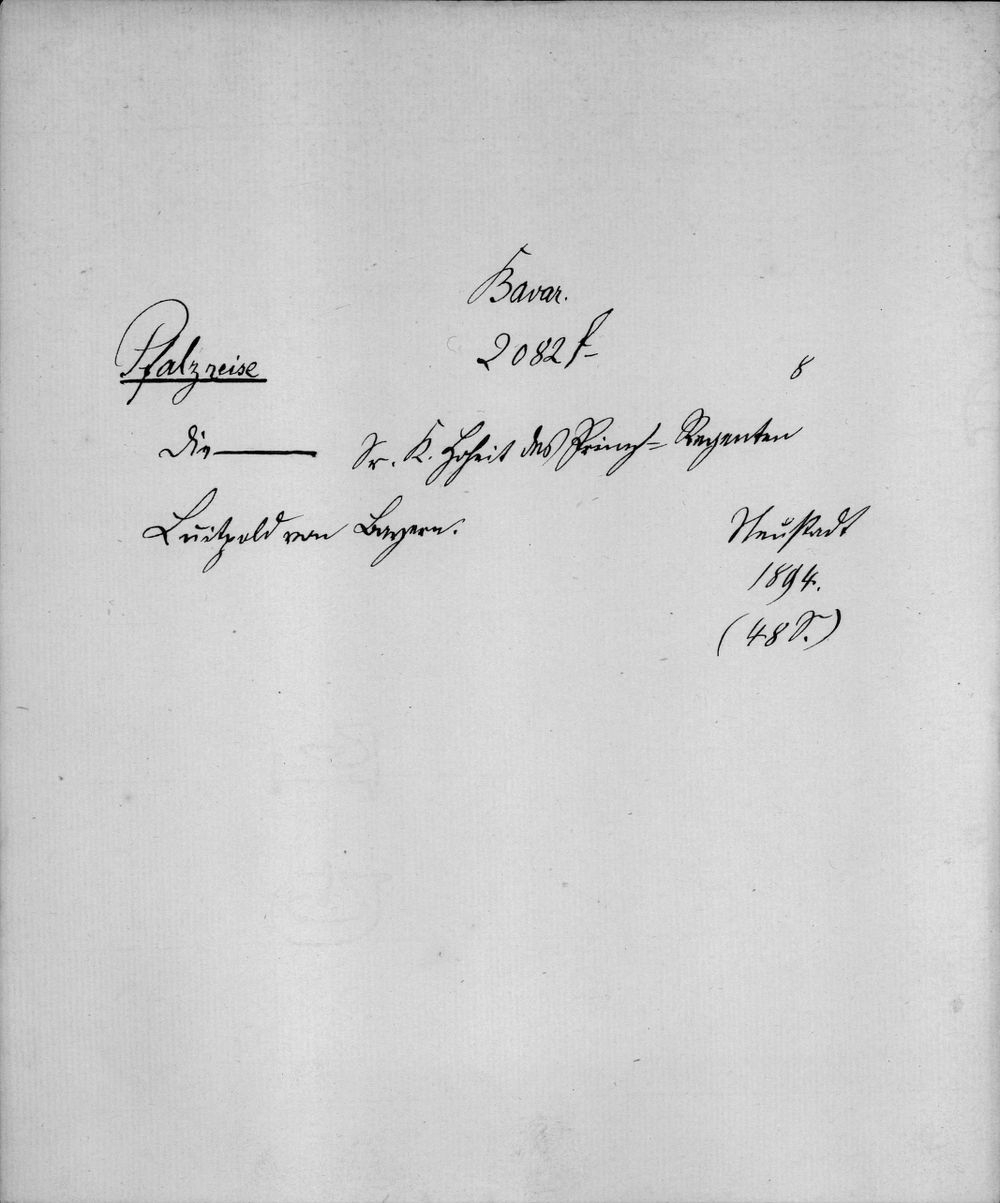 Bavar.
2082 f
Pfalzreise
8
Die —— Sr. K. Hoheit des Prinz-Regenten
Luitpold von Bayern.
Neustadt
1894.
(48 S.)